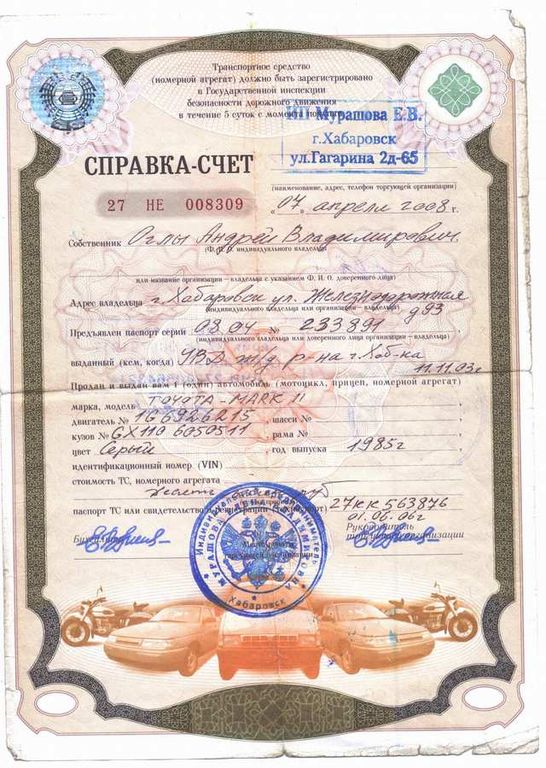 Транспортное средство
(номерной агрегат) должно быть зарегистрировано
в Государственной инспекции
безопасности дорожного движения
в течение 5 суток с момента
ИП Мурашова Е.В.
г.Хабаровск
ул.Гагарина 2д-65
СПРАВКА-СЧЕТ
(наименование, адрес, телефон торгующей организации)
27 НЕ 008309
"07" апреля 2008 г.
Собственник Оглы Андрей Владимирович
(Ф.И.О. индивидуального владельца
или название организации – владельца с указанием Ф.И.О. доверенного лица)
Адрес владельца г. Хабаровск ул. Железнодорожная
(индивидуального владельца или организации – владельца)
д 93
Предъявлен паспорт серии 08 04 № 233891
(индивидуального владельца или доверенного лица организации – владельца)
выданный (кем, когда) УВД ж/д р-на г. Хаб-ка
11.11.03г
Продан и выдан вам 1 (один) автомобиль (мотоцикл, прицеп, номерной агрегат)
марка, модель TOYOTA-MARK II
двигатель № 1G 6926215, шасси №
кузов № GX110 6050511, рама №
цвет Серый, год выпуска 1985г
идентификационный номер (VIN)
стоимость ТС, номерного агрегата
десять руб
паспорт ТС или свидетельство 27 КК 563876
01.06.06г
Бухгалтер
Руководитель
торг. организации
Индивидуальный предприниматель
Хабаровск